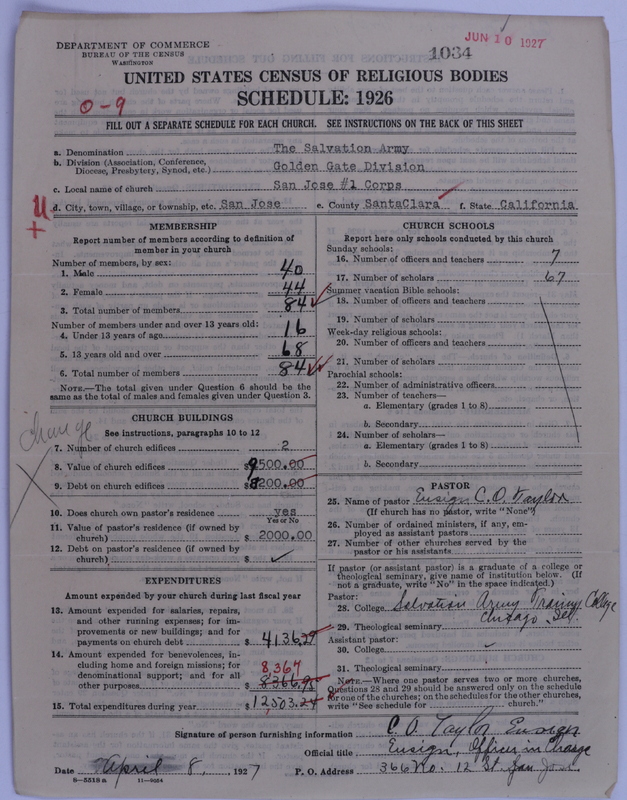 DEPARTMENT OF COMMERCE
BUREAU OF THE CENSUS
WASHINGTON
1034
JUN 10 1927
UNITED STATES CENSUS OF RELIGIOUS BODIES
SCHEDULE: 1926
0-9
FILL OUT A SEPARATE SCHEDULE FOR EACH CHURCH. SEE INSTRUCTIONS ON THE BACK OF THIS SHEET
a. Denomination The Salvation Army
b. Division (Association, Conference, Diocese, Presbytery, Synod, etc.) Golden Gate Division
c. Local name of church San Jose #1 Corps
d. City, town, village, or township, etc. San Jose e. County SantaClara f. State California
MEMBERSHIP
Report number of members according to definition of
member in your church
Number of members, by sex:
1. Male 40
2. Female 44
3. Total number of members 84
Number of members under and over 13 years old:
4. Under 13 years of age 16
5. 13 years old and over 68
6. Total number of members 84
NOTE.—The total given under Question 6 should be the
same as the total of males and females given under Question 3.
change
CHURCH BUILDINGS
See instructions, paragraphs 10 to 12
7. Number of church edifices 2
8. Value of church edifices $9500.00
9. Debt on church edifices $8200.00
10. Does church own pastor's residence yes
Yes or No
11. Value of pastor's residence (if owned by
church) $ 2000.00
12. Debt on pastor's residence (if owned by
church) $ ✓
EXPENDITURES
Amount expended by your church during last fiscal year
13. Amount expended for salaries, repairs,
and other running expenses; for im-
provements or new buildings; and for
payments on church debt $ 4136.29
14. Amount expended for benevolences, in-
cluding home and foreign missions; for
denominational support; and for all
other purposes 8367
$ 8366.95
15. Total expenditures during year $ 12503.24
CHURCH SCHOOLS
Report here only schools conducted by this church
Sunday schools:
16. Number of officers and teachers 7
17. Number of scholars 67
Summer vacation Bible schools:
18. Number of officers and teachers
19. Number of scholars
Week-day religious schools:
20. Number of officers and teachers
21. Number of scholars
Parochial schools:
22. Number of administrative officers
23. Number of teachers—
a. Elementary (grades 1 to 8)
b. Secondary
24. Number of scholars—
a. Elementary (grades 1 to 8)
b. Secondary
PASTOR
25. Name of pastor Ensign C.O. Taylor
(If church has no pastor, write "None")
26. Number of ordained ministers, if any, em-
ployed as assistant pastors
27. Number of other churches served by the
pastor or his assistants
If pastor (or assistant pastor) is a graduate of a college or
theological seminary, give name of institution below. (If
not a graduate, write "No" in the space indicated.)
Pastor:
28. College Salvation Army Training College
Chicago, Ill.
29. Theological seminary
Assistant pastor:
30. College
31. Theological seminary
NOTE.—Where one pastor serves two or more churches,
Questions 28 and 29 should be answered only on the schedule
for one of the churches; on the schedules for the other churches,
write "See schedule for church."
Signature of person furnishing information C. O. Taylor Ensign
Official title Ensign, Officer in Charge
Date April 8, 1927 P. O. Address 366 No. 12 St. San Jose
S-551Sa 11-9034